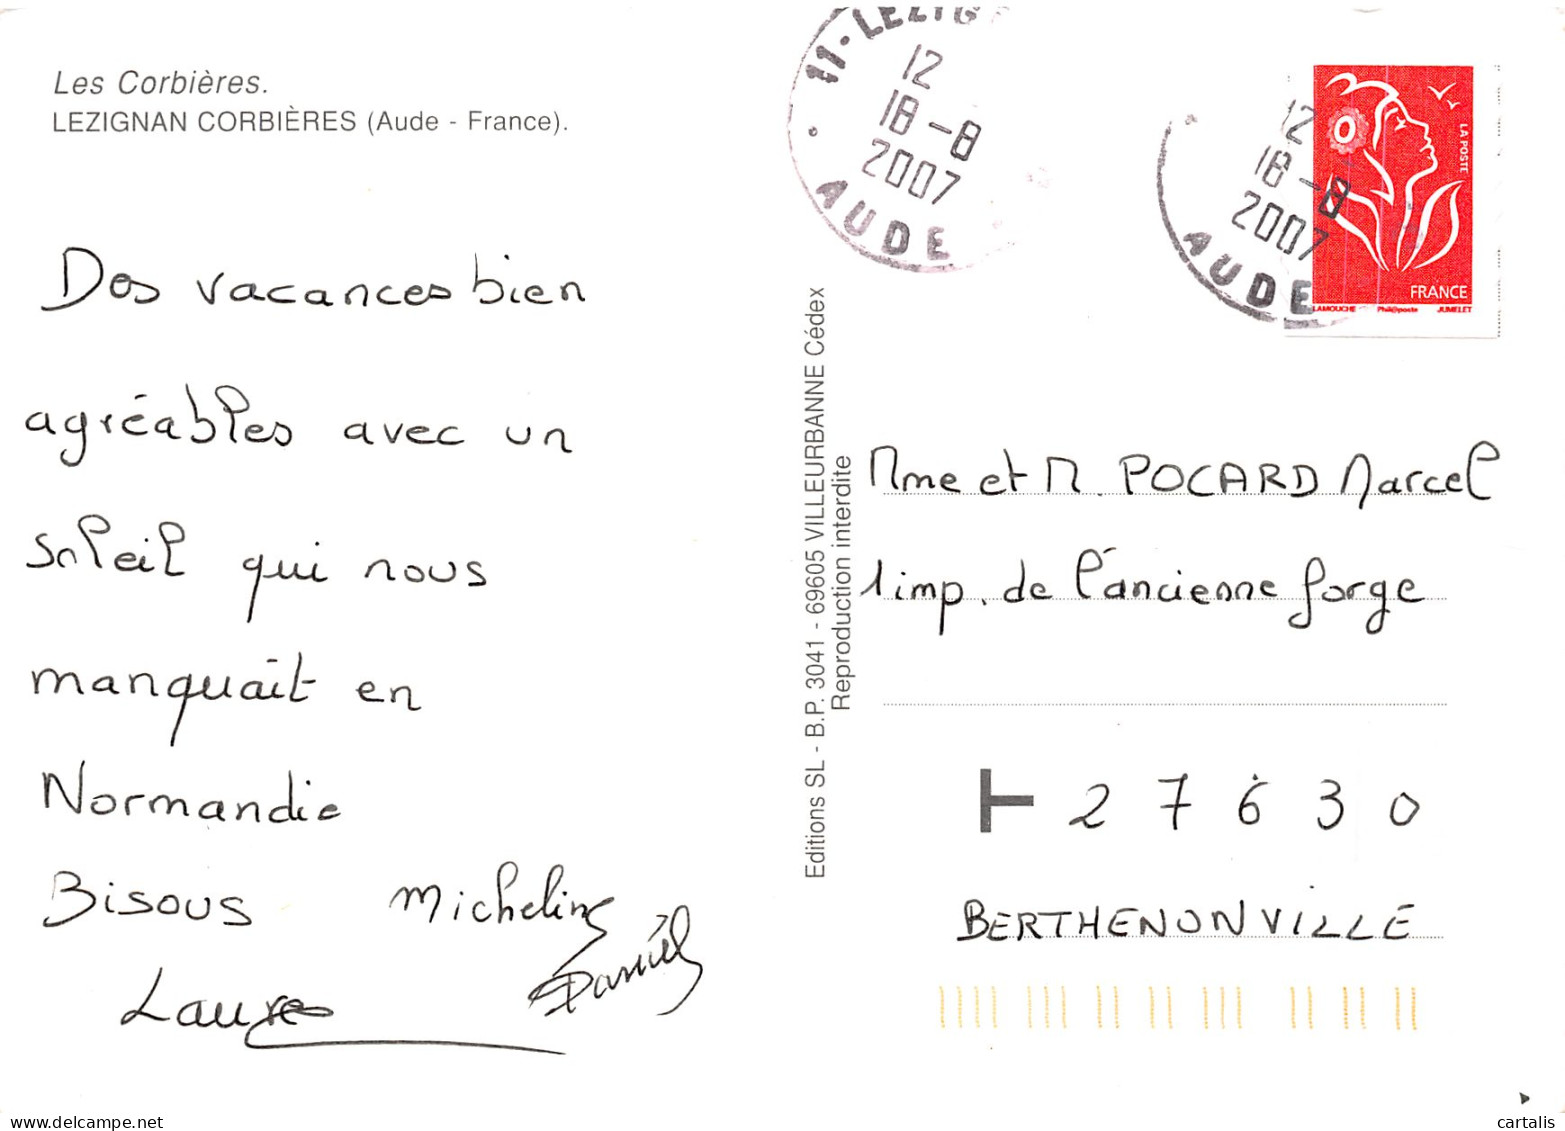 Les Corbières.
LEZIGNAN CORBIÈRES (Aude - France).
Des vacances bien
agréables avec un
soleil qui nous
manquait en
Normandie
Bisous Micheline
Daniel
Laure
Editions SL - B.P. 3041 - 69605 VILLEURBANNE Cédex
Reproduction interdite
11 • LEZIG
12
18 - 8
2007
AUDE
12
18 - 8
2007
AUDE
LA POSTE
FRANCE
LAMOUCHE Phil@poste JUMELET
Mme et M. POCARD Marcel
1 imp. de l'ancienne forge
T 27630
BERTHENONVILLE
www.delcampe.net
cartalis